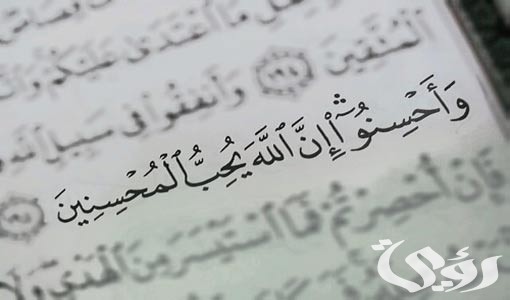 ٱعْتَدَىٰ عَلَيْكُمْ
ٱلْمُتَّقِينَ ١٩٤ وَأَنفِقُوا۟ فِى سَبِيلِ ٱللَّهِ
وَأَحْسِنُوٓا۟ۛ إِنَّ ٱللَّهَ يُحِبُّ ٱلْمُحْسِنِينَ
فَإِنْ أُحْصِرْتُمْ فَمَا ٱسْتَيْسَرَ مِنَ ٱلْهَدْىِ وَلَا
رؤية